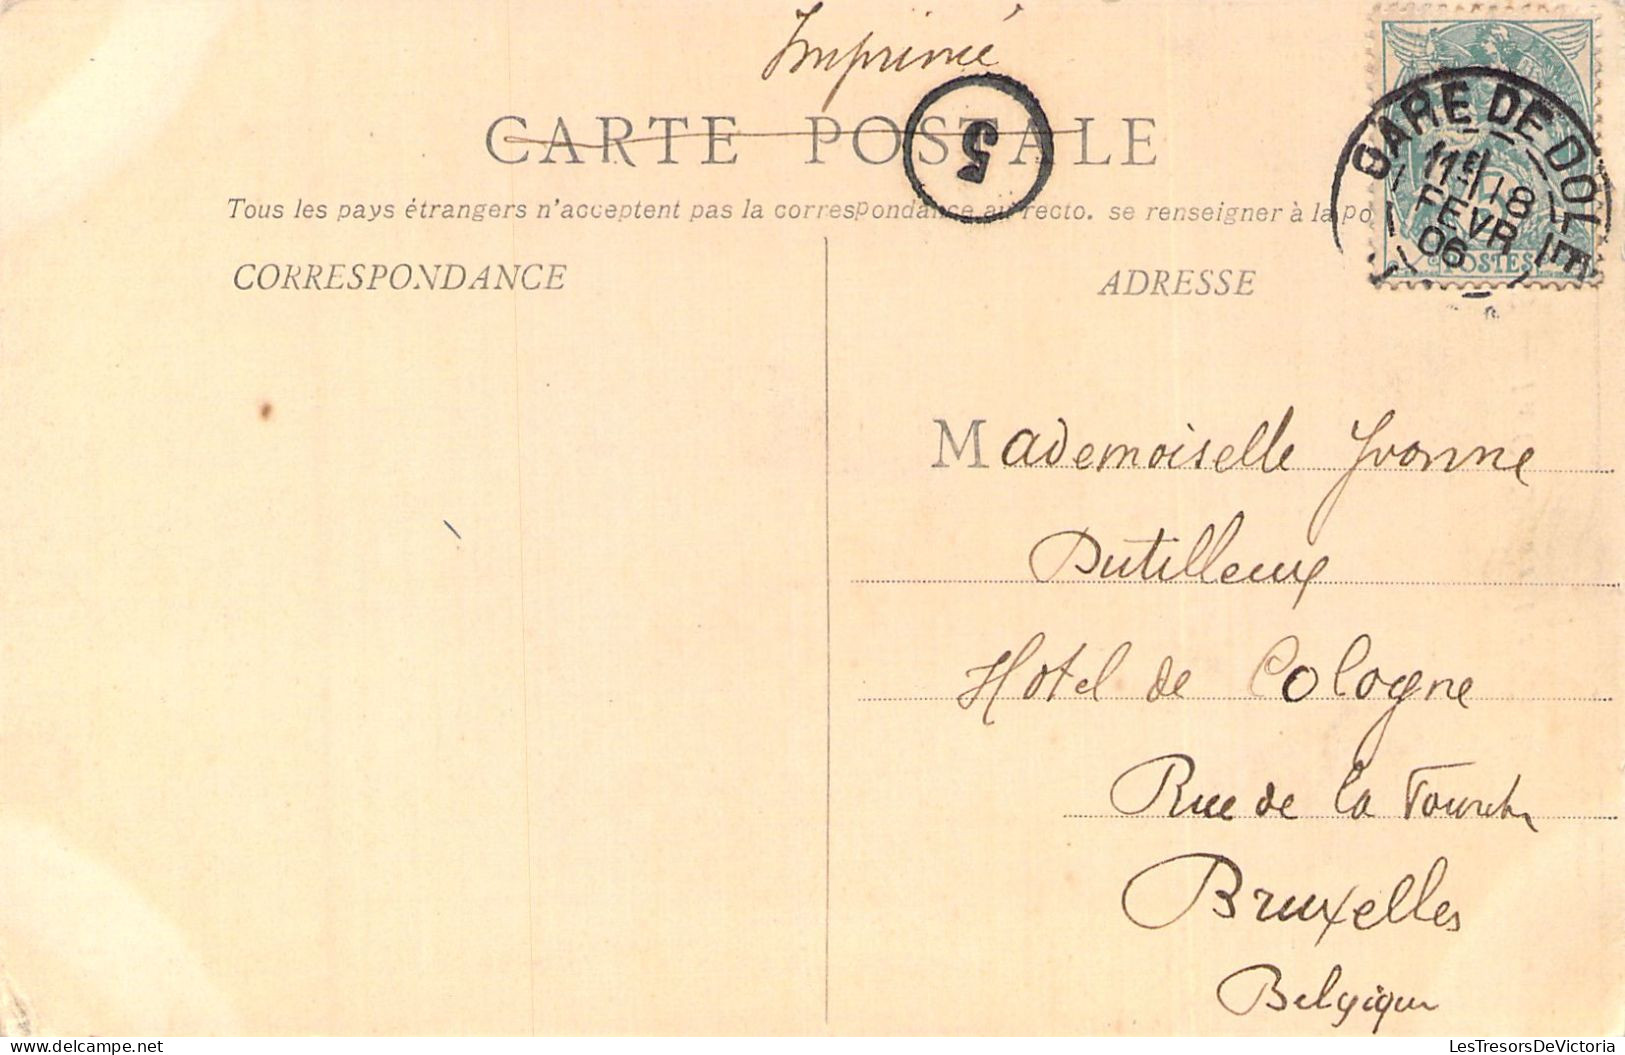 Imprimé
CARTE POSTALE
5
Tous les pays étrangers n'acceptent pas la correspondance au recto. se renseigner à la po
CORRESPONDANCE
ADRESSE
GARE DE DOL
11 18
FEVR
06
POSTES
Mademoiselle Yvonne
Dutilleux
Hotel de Cologne
Rue de la Fourche
Bruxelles
Belgique
LesTresorsDeVictoria